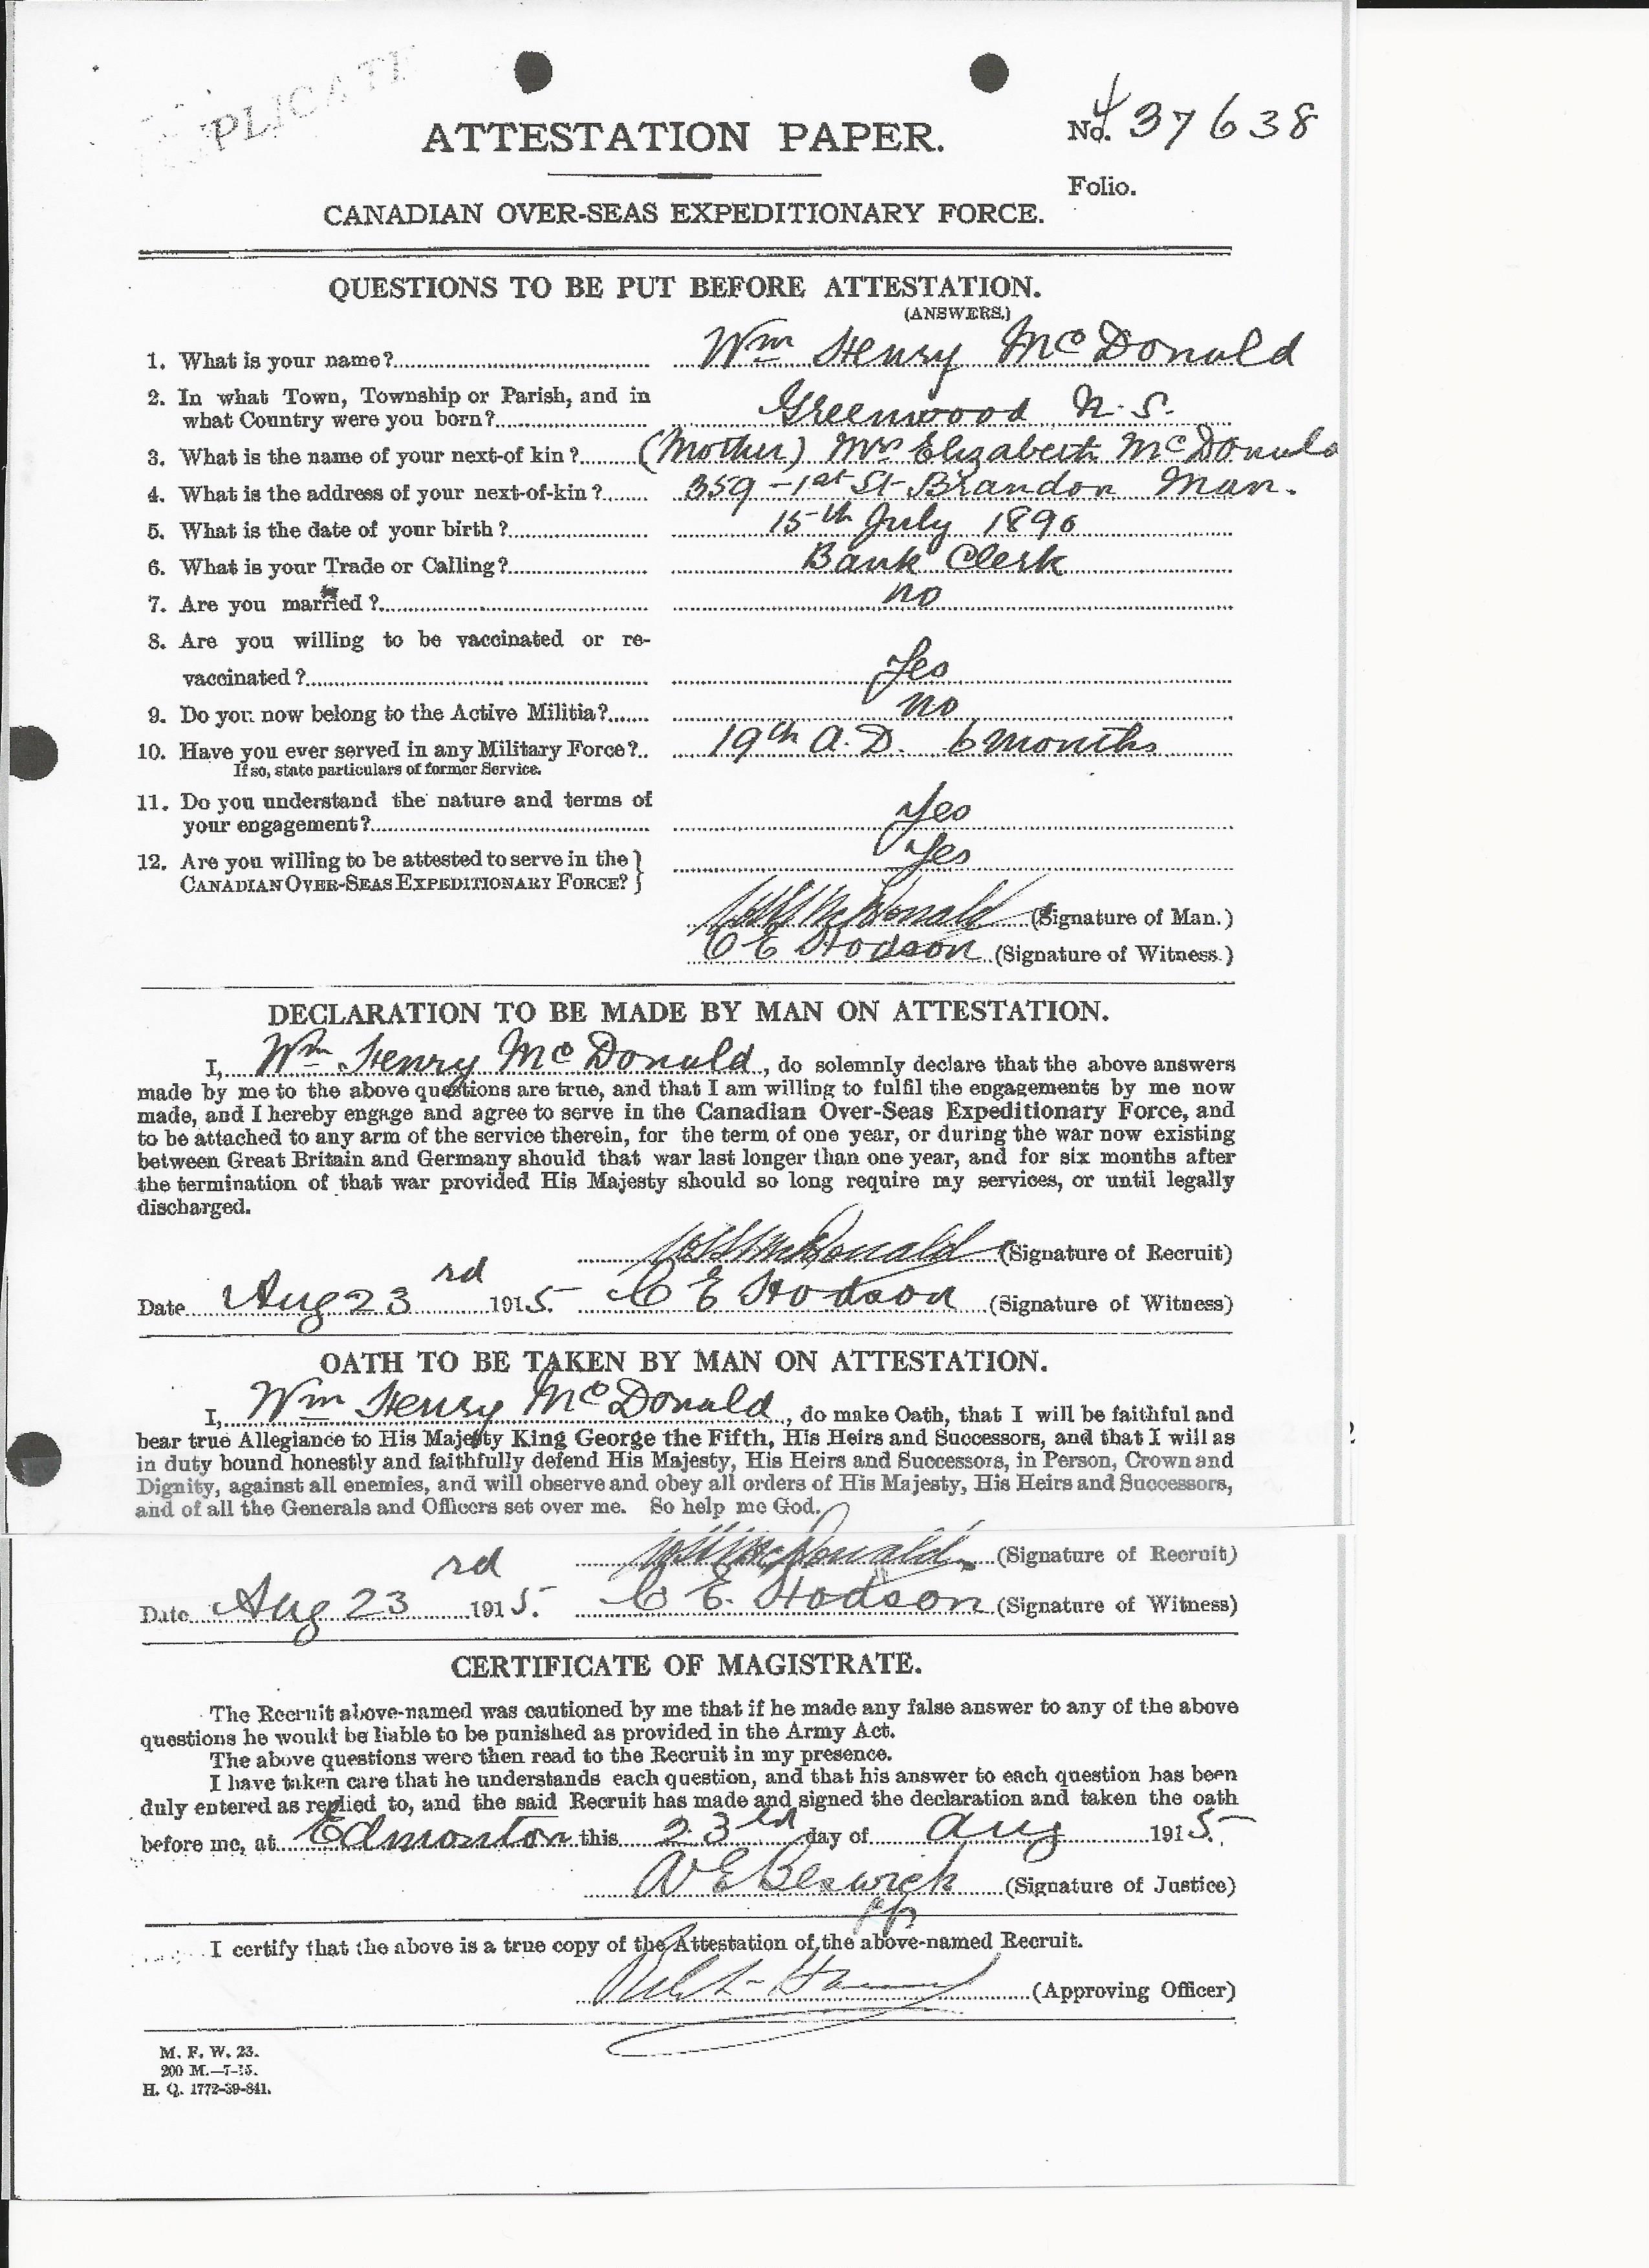 DUPLICATE
ATTESTATION PAPER.
No. 437638
Folio.
CANADIAN OVER-SEAS EXPEDITIONARY FORCE.
QUESTIONS TO BE PUT BEFORE ATTESTATION.
(ANSWERS.)
1. What is your name? Wm Henry McDonald
2. In what Town, Township or Parish, and in
what Country were you born? Greenwood N.S.
3. What is the name of your next-of kin? (Mother) Mrs Elizabeth McDonald
4. What is the address of your next-of-kin? 359 - 1st St Brandon Man.
5. What is the date of your birth? 15th July 1896
6. What is your Trade or Calling? Bank Clerk
7. Are you married? no
8. Are you willing to be vaccinated or re-
vaccinated? Yes
9. Do you now belong to the Active Militia? no
10. Have you ever served in any Military Force? 19th A.D. 6 months
If so, state particulars of former Service.
11. Do you understand the nature and terms of
your engagement? Yes
12. Are you willing to be attested to serve in the
CANADIAN OVER-SEAS EXPEDITIONARY FORCE? Yes
WH McDonald (Signature of Man.)
C E Hodson (Signature of Witness.)
DECLARATION TO BE MADE BY MAN ON ATTESTATION.
I, Wm Henry McDonald, do solemnly declare that the above answers
made by me to the above questions are true, and that I am willing to fulfil the engagements by me now
made, and I hereby engage and agree to serve in the Canadian Over-Seas Expeditionary Force, and
to be attached to any arm of the service therein, for the term of one year, or during the war now existing
between Great Britain and Germany should that war last longer than one year, and for six months after
the termination of that war provided His Majesty should so long require my services, or until legally
discharged.
WH McDonald (Signature of Recruit)
Date Aug 23rd 1915. C E Hodson (Signature of Witness)
OATH TO BE TAKEN BY MAN ON ATTESTATION.
I, Wm Henry McDonald, do make Oath, that I will be faithful and
bear true Allegiance to His Majesty King George the Fifth, His Heirs and Successors, and that I will as
in duty bound honestly and faithfully defend His Majesty, His Heirs and Successors, in Person, Crown and
Dignity, against all enemies, and will observe and obey all orders of His Majesty, His Heirs and Successors,
and of all the Generals and Officers set over me. So help me God.
WH McDonald (Signature of Recruit)
Date Aug 23rd 1915. C E. Hodson (Signature of Witness)
CERTIFICATE OF MAGISTRATE.
The Recruit above-named was cautioned by me that if he made any false answer to any of the above
questions he would be liable to be punished as provided in the Army Act.
The above questions were then read to the Recruit in my presence.
I have taken care that he understands each question, and that his answer to each question has been
duly entered as replied to, and the said Recruit has made and signed the declaration and taken the oath
before me, at Edmonton this 23rd day of Aug 1915.
Beswick (Signature of Justice)
I certify that the above is a true copy of the Attestation of the above-named Recruit.
(Approving Officer)
M. F. W. 23.
200 M.—7-15.
H. Q. 1772-39-841.